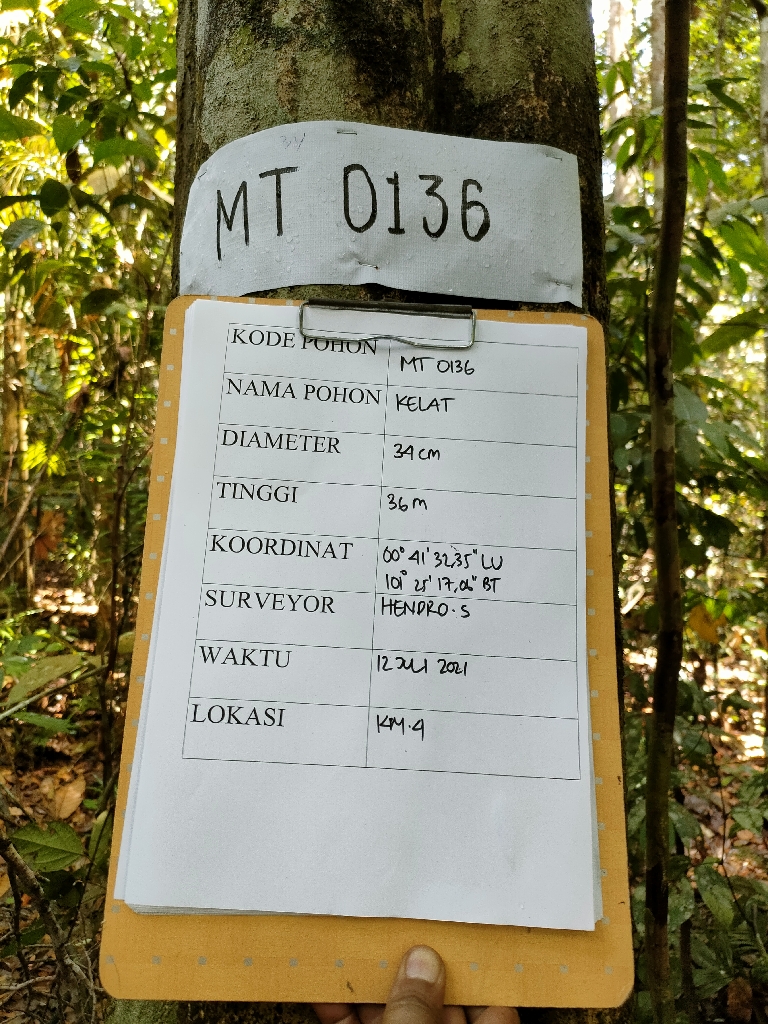 MT 0136
KODE POHON MT 0136
NAMA POHON KELAT
DIAMETER 34 cm
TINGGI 36 m
KOORDINAT 00° 41' 32,35" LU
101° 25' 17,06" BT
SURVEYOR HENDRO.S
WAKTU 12 JULI 2021
LOKASI KM.4